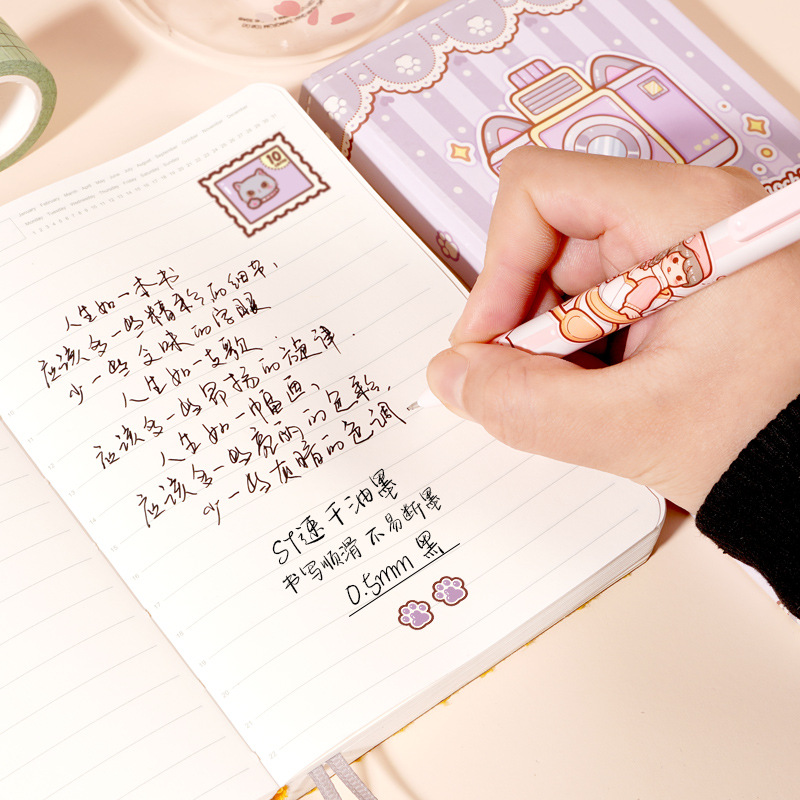 January February March April May June July August September October November December
Monday Tuesday Wednesday Thursday Friday Saturday Sunday
10
人生如一本书
应该多一些精彩的细节,
少一些乏味的字眼
人生如一支歌.
应该多一些昂扬的旋律.
人生如一幅画,
应该多一些亮丽的色彩,
少一些灰暗的色调.
ST速干油墨
书写顺滑不易断墨
0.5mm 黑